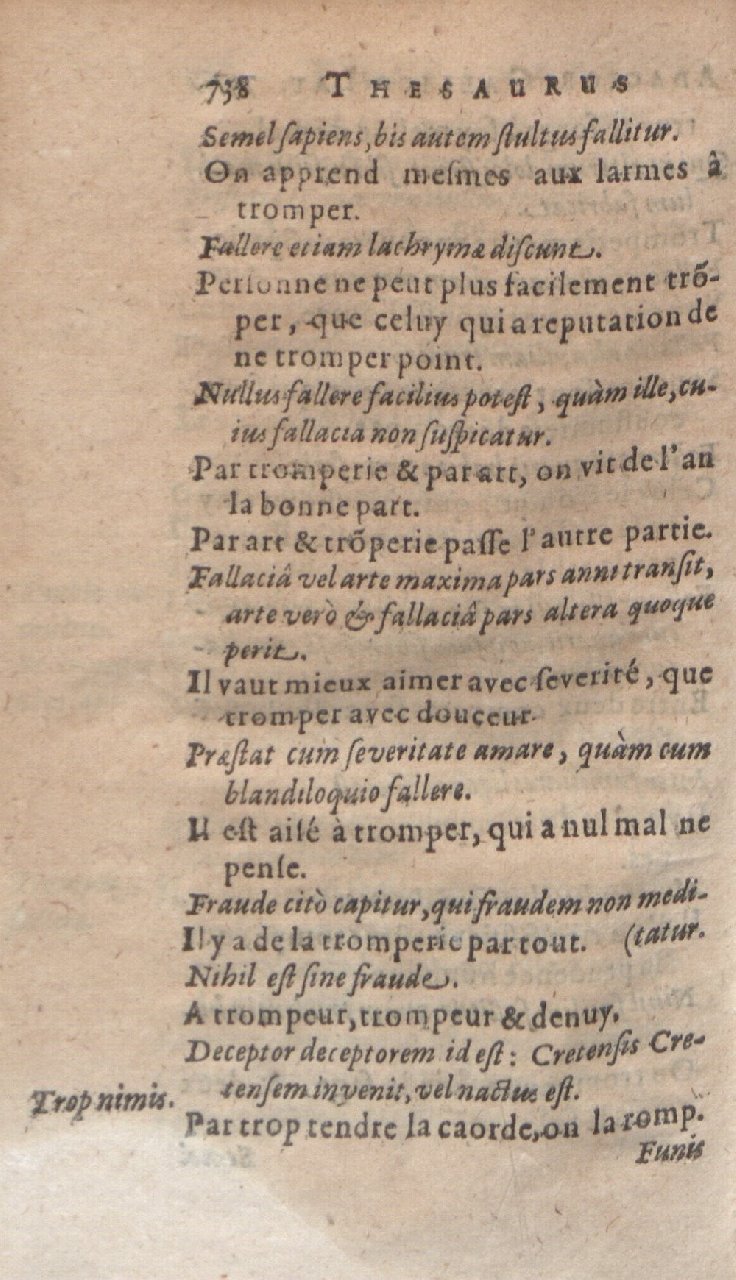 738 THESAURUS
Semel ſapiens, bis autem ſtultus fallitur.
On apprend meſmes aux larmes à
tromper.
Fallere etiam lachrymæ diſcunt.
Perſonne ne peut plus facilement trõ-
per, que celuy qui a reputation de
ne tromper point.
Nullus fallere facilius poteſt, quàm ille, cu-
ius fallacia non ſuſpicatur.
Par tromperie & par art, on vit de l'an
la bonne part.
Par art & trõperie paſſe l'autre partie.
Fallaciâ vel arte maxima pars anni tranſit,
arte verò & fallaciâ pars altera quoque
perit.
Il vaut mieux aimer avec ſeverité, que
tromper avec douceur.
Præſtat cum ſeveritate amare, quàm cum
blandiloquio fallere.
Il eſt aiſé à tromper, qui a nul mal ne
penſe.
Fraude citò capitur, qui fraudem non medi-
Il y a de la tromperie par tout. (tatur.
Nihil eſt ſine fraude.
A trompeur, trompeur & denuy.
Deceptor deceptorem id eſt: Cretenſis Cre-
tenſem invenit, vel nactus eſt.
Trop nimis.
Par trop tendre la caorde, on la romp.
Funis